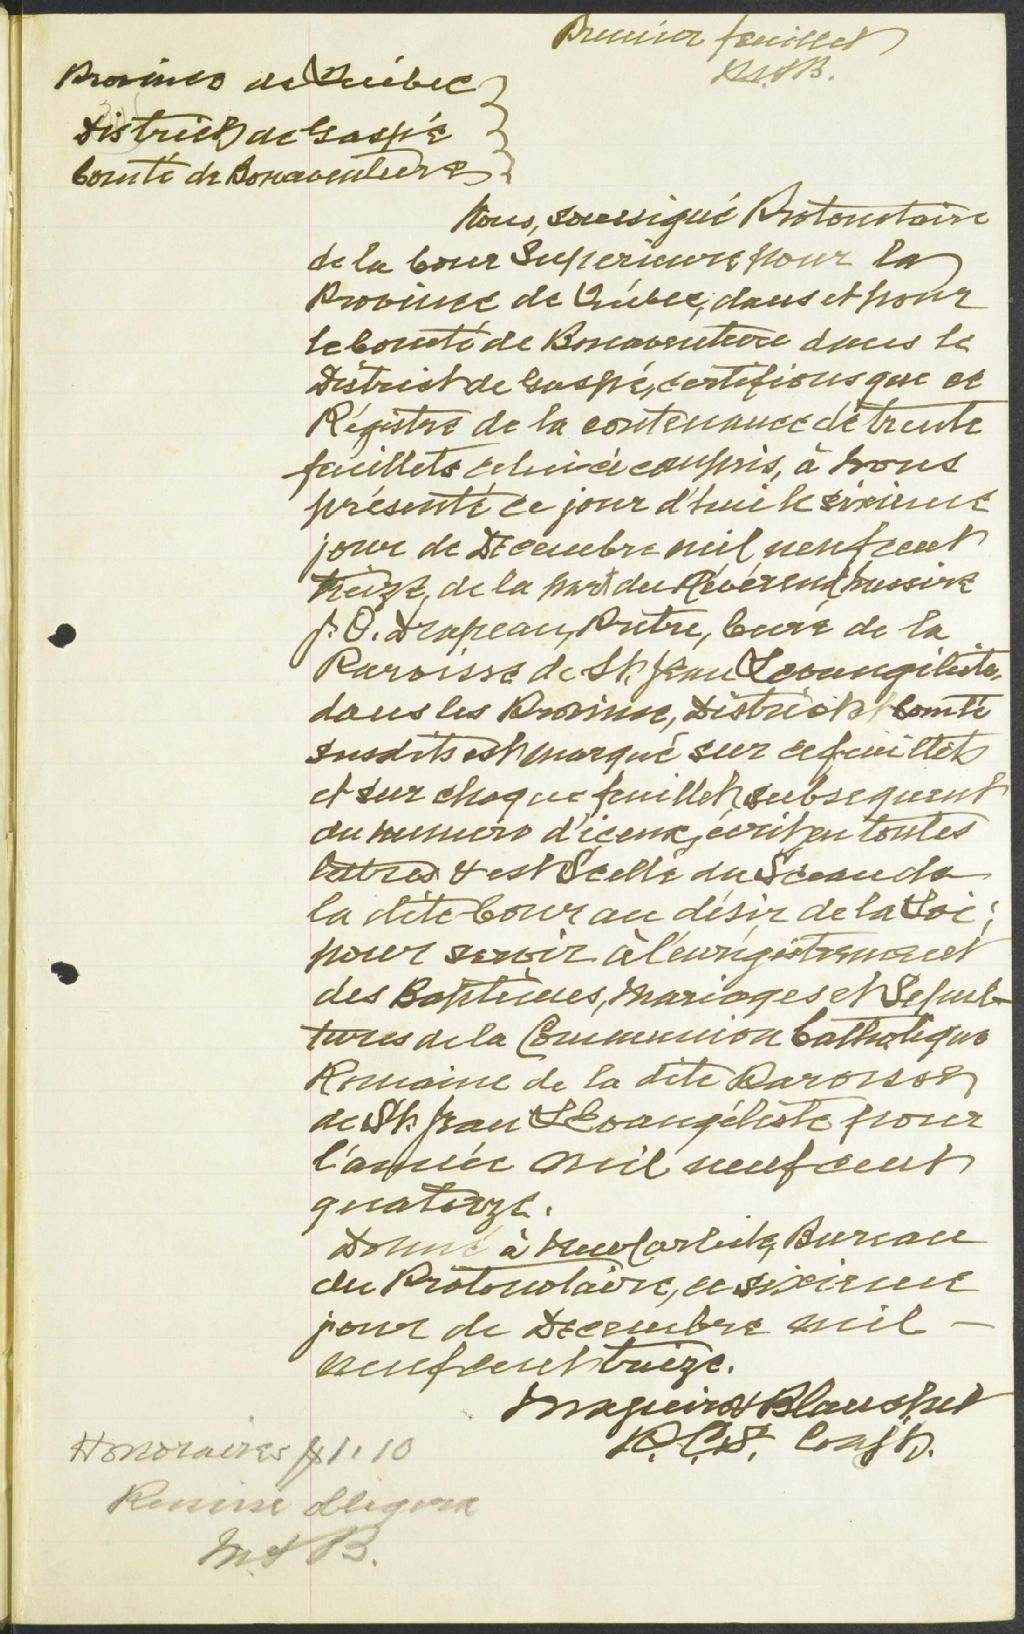 Premier feuillet
M. & B.
Province de Québec
District de Gaspé
Comté de Bonaventure
Nous, soussigné Protonotaire
de la Cour Superieure pour la
Province de Québec, dans et pour
le Comté de Bonaventure dans le
District de Gaspé, certifions que ce
Régistre de la contenance de trente
feuillets celui-ci compris, à nous
présenté ce jour d'hui le sixieme
jour de Décembre mil neuf cent
treize, de la part du Révérend Messire
J. O. Drapeau, Prètre, Curé de la
Paroisse de St. Jean L'Evangeliste,
dans les Province, District & Comté
susdits est marqué sur ce feuillet
et sur chaque feuillet subsequent
du numero d'iceux, écrit en toutes
lettres & est Scellé du Sceau de
la dite Cour au désir de la Loi;
pour servir à l'enregistrement
des Baptêmes, Mariages et Sepul-
tures de la Communion Catholique
Romaine de la dite Paroisse
de St. Jean L'Evangéliste pour
l'année mil neuf cent
quatorze.
Donné à New Carlisle, Bureau
du Protonotaire, ce sixieme
jour de Decembre mil —
neuf cent treize.
Maguire & Blanchet
P. C. S. Conjt.
Honoraires $1.10
M. & B.